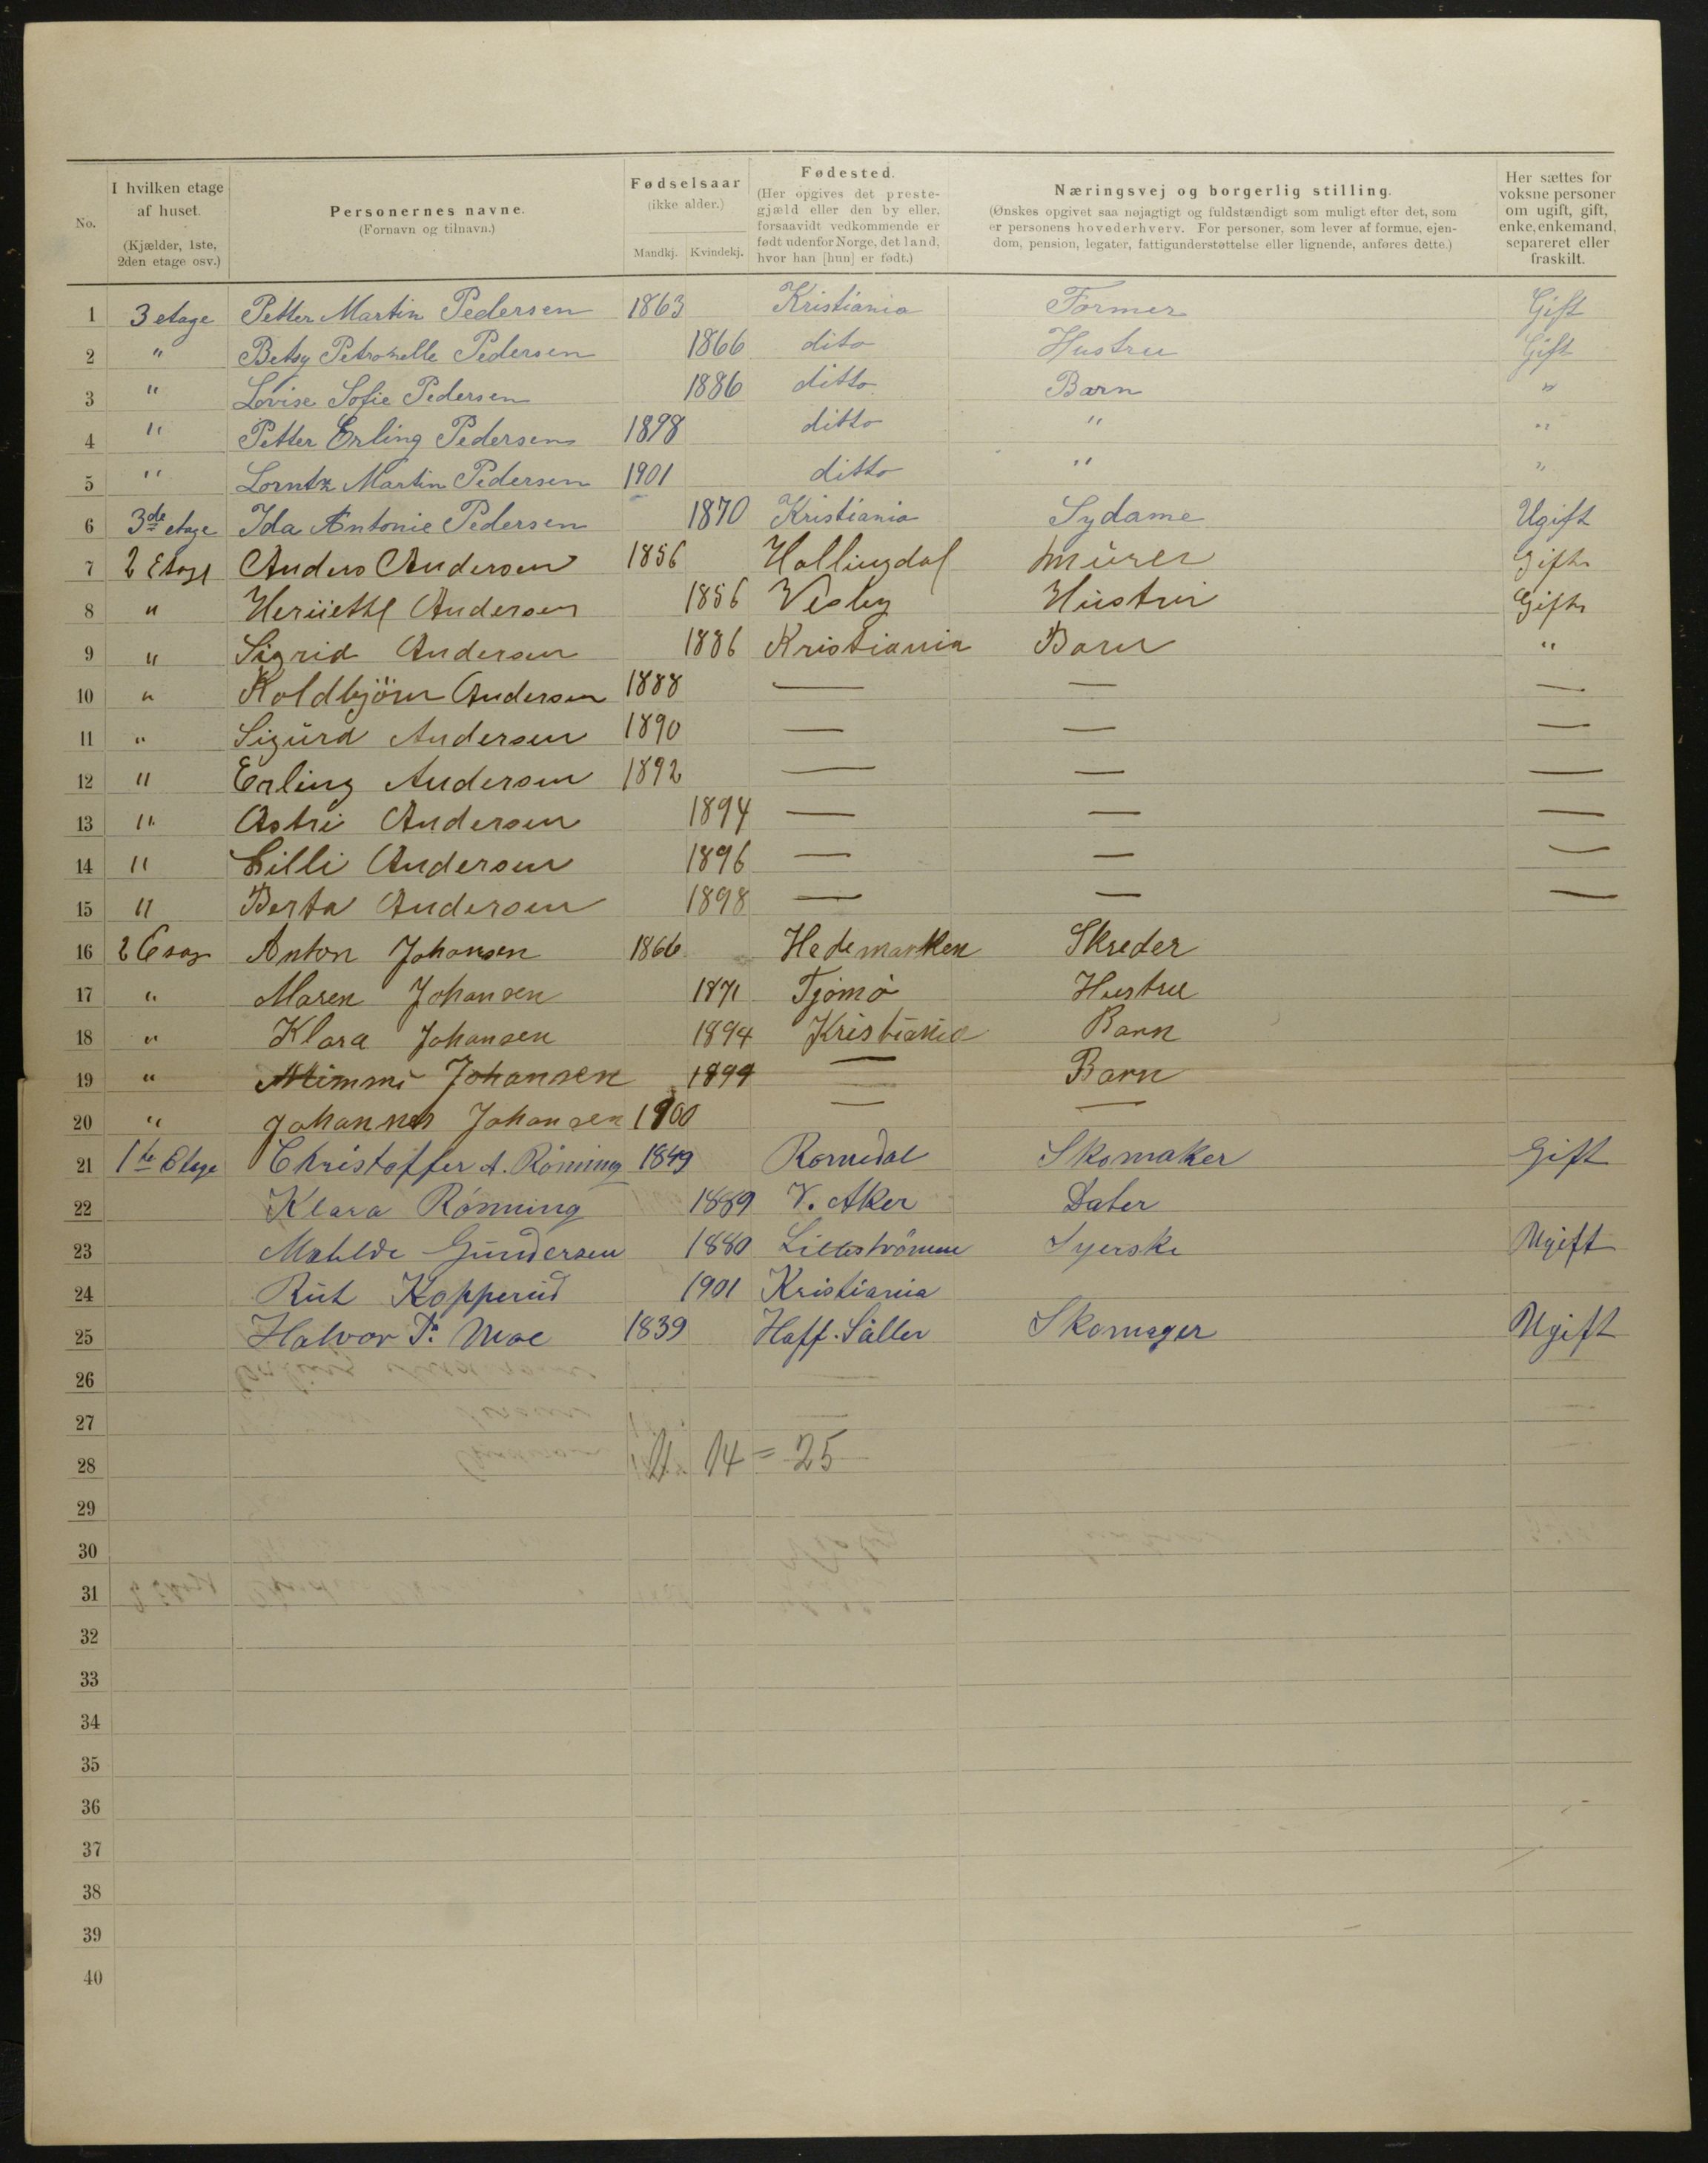 No.
I hvilken etage af huset. (Kjælder, 1ste, 2den etage osv.)
Personernes navne. (Fornavn og tilnavn.)
Fødselsaar (ikke alder.) Mandkj. Kvindekj.
Fødested. (Her opgives det prestegjæld eller den by eller, forsaavidt vedkommende er født udenfor Norge, det land, hvor han [hun] er født.)
Næringsvej og borgerlig stilling. (Ønskes opgivet saa nøjagtigt og fuldstændigt som muligt efter det, som er personens hovederhverv. For personer, som lever af formue, ejendom, pension, legater, fattigunderstøttelse eller lignende, anføres dette.)
Her sættes for voksne personer om ugift, gift, enke, enkemand, separeret eller fraskilt.
1 3 etage Petter Martin Pedersen 1863 Kristiania Former Gift
2 " Betsy Petronelle Pedersen 1866 dito Hustru Gift
3 " Lovise Sofie Pedersen 1886 ditto Barn "
4 " Petter Erling Pedersen 1898 ditto " "
5 " Lorntz Martin Pedersen 1901 ditto " "
6 3de etage Ida Antonie Pedersen 1870 Kristiania Sydame Ugift
7 2 Etage Anders Andersen 1856 Hallingdal Murer Gift
8 " Andersen 1856 Visby Hustru Gift
9 " Sigrid Andersen 1886 Kristiania Barn "
10 " Koldbjörn Andersen 1888 — — —
11 " Sigurd Andersen 1890 — — —
12 " Erling Andersen 1892 — — —
13 " Astri Andersen 1894 — — —
14 " Lilli Andersen 1896 — — —
15 " Berta Andersen 1898 — — —
16 2 Anton Johansen 1866 Hedemarken Skreder
17 " Maren Johansen 1871 Tjømø Hustru
18 " Klara Johansen 1894 Kristiania Barn
19 " Mimmi Johansen 1899 — Barn
20 " Johannes Johansen 1900 — —
21 1te Etage Christoffer A. Rönning 1849 Romedal Skomaker Gift
22 Klara Rönning 1889 V. Aker Dater
23 Matilde Gundersen 1880 Lilleströmme Syerske Ugift
24 Rut Kopperud 1901 Kristiania
25 Halvor P. Moe 1839 Haff. Säller Skomager Ugift
26
27
28 11 14 = 25
29
30
31
32
33
34
35
36
37
38
39
40